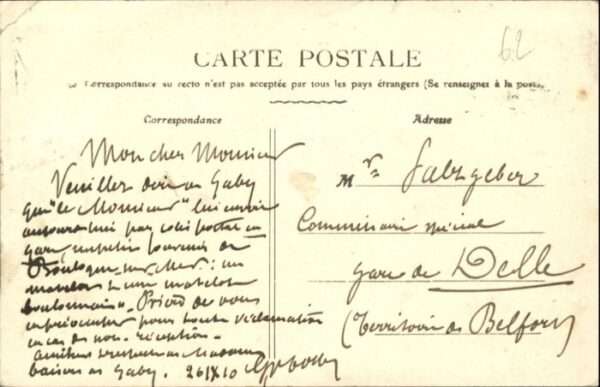 62
CARTE POSTALE
Correspondance au recto n'est pas acceptée par tous les pays étrangers (Se renseigner à la poste
Correspondance
Adresse
Mon cher Monsieur
Veuillez dire à Gaby
que "le Monsieur" lui envoie
aujourd'hui par colis postal en
gare, un petit souvenir de
Boulogne-sur-Mer : un
matelot & une matelote
boulonnais. Prière de vous
pour toute réclamation
en cas de non-réception.
Amitiés
baisers à Gaby. 26 IX 10
Mr Salzgeber
Commissaire spécial
Gare de Delle
(Territoire de Belfort)